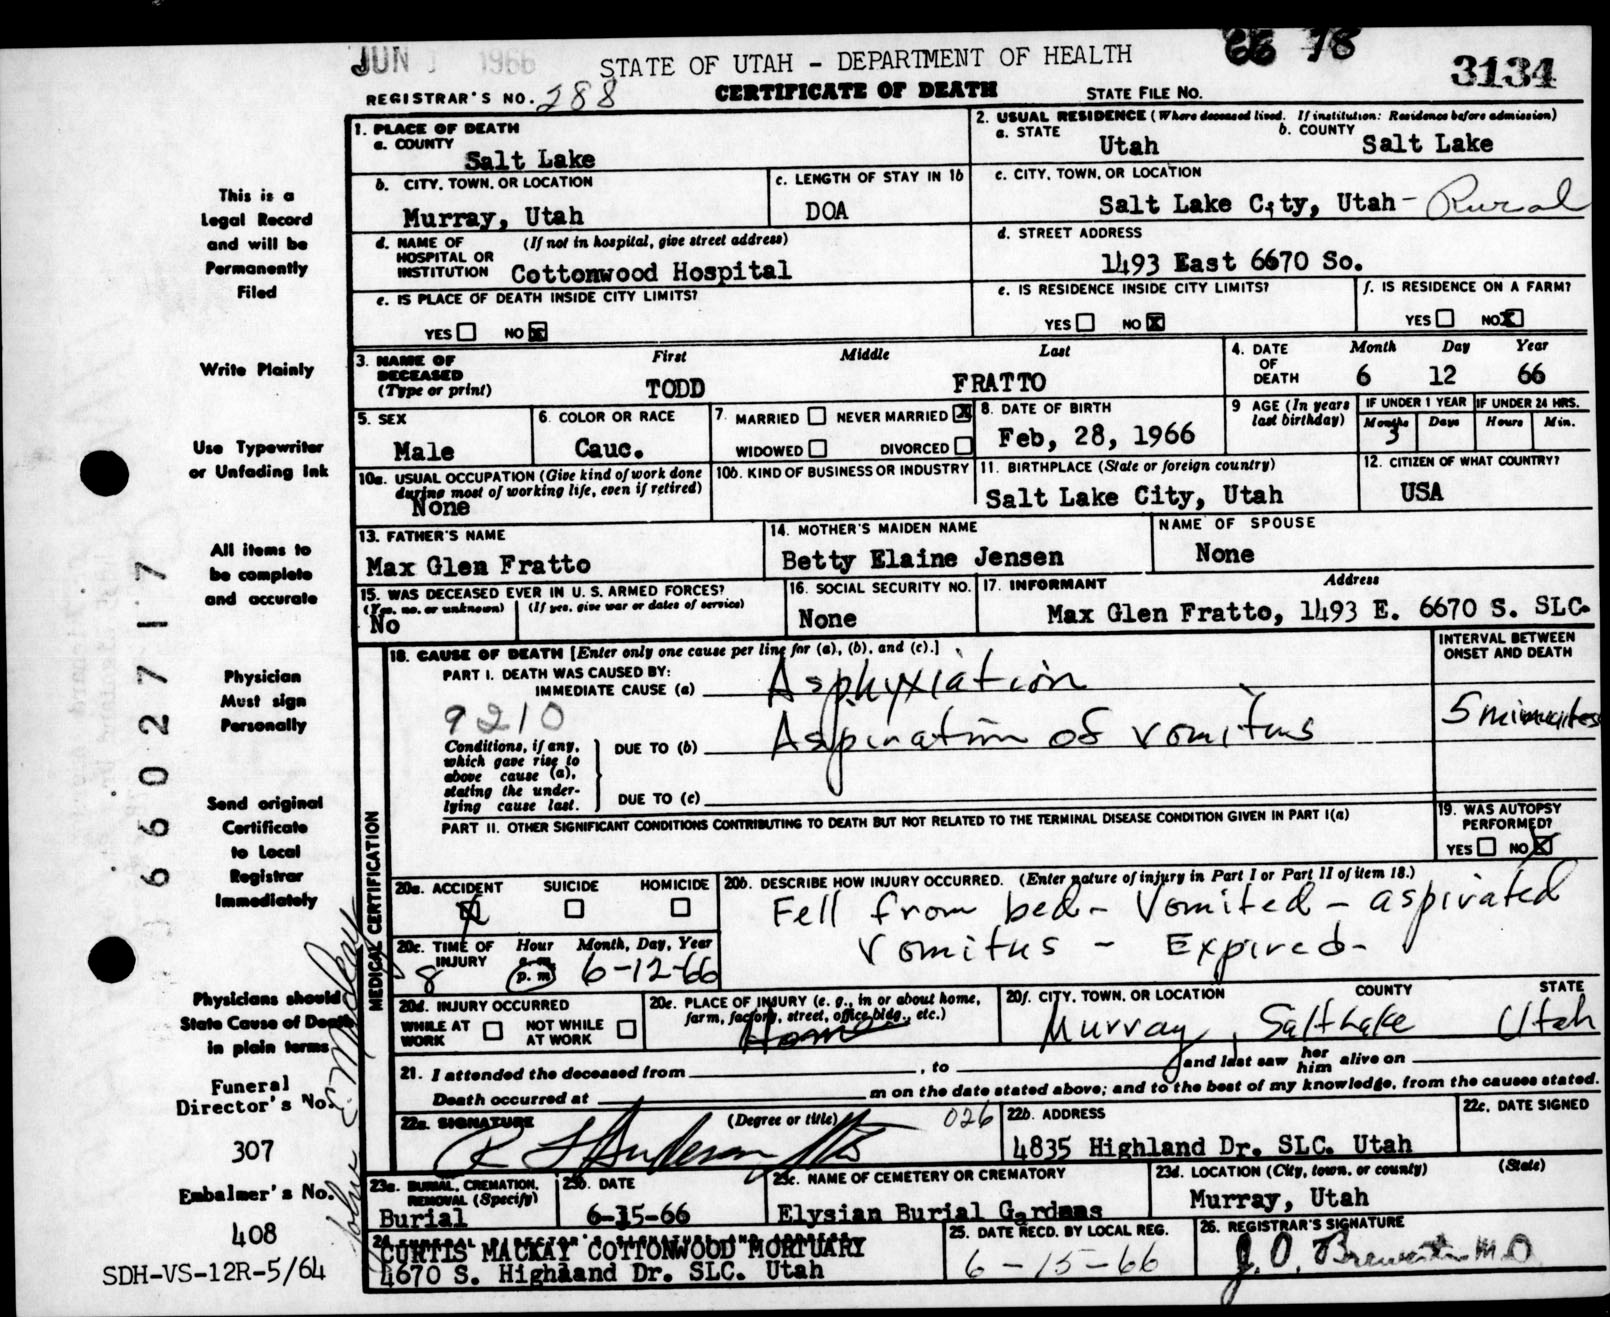 JUN 1966
STATE OF UTAH - DEPARTMENT OF HEALTH
66 18
3134
REGISTRAR'S NO. 288
CERTIFICATE OF DEATH
STATE FILE NO.
1. PLACE OF DEATH
a. COUNTY
Salt Lake
2. USUAL RESIDENCE (Where deceased lived. If institution: Residence before admission)
a. STATE
Utah
b. COUNTY
Salt Lake
b. CITY, TOWN, OR LOCATION
Murray, Utah
c. LENGTH OF STAY IN 1b
DOA
c. CITY, TOWN, OR LOCATION
Salt Lake City, Utah - Rural
d. NAME OF HOSPITAL OR INSTITUTION
(If not in hospital, give street address)
Cottonwood Hospital
d. STREET ADDRESS
1493 East 6670 So.
e. IS PLACE OF DEATH INSIDE CITY LIMITS?
YES NO X
e. IS RESIDENCE INSIDE CITY LIMITS?
YES NO X
f. IS RESIDENCE ON A FARM?
YES NO X
3. NAME OF DECEASED (Type or print)
First Middle Last
TODD FRATTO
4. DATE OF DEATH
Month Day Year
6 12 66
5. SEX
Male
6. COLOR OR RACE
Cauc.
7. MARRIED NEVER MARRIED X
WIDOWED DIVORCED
8. DATE OF BIRTH
Feb, 28, 1966
9 AGE (In years last birthday)
IF UNDER 1 YEAR
Months Days
3
IF UNDER 24 HRS.
Hours Min.
10a. USUAL OCCUPATION (Give kind of work done during most of working life, even if retired)
None
10b. KIND OF BUSINESS OR INDUSTRY
11. BIRTHPLACE (State or foreign country)
Salt Lake City, Utah
12. CITIZEN OF WHAT COUNTRY?
USA
13. FATHER'S NAME
Max Glen Fratto
14. MOTHER'S MAIDEN NAME
Betty Elaine Jensen
NAME OF SPOUSE
None
15. WAS DECEASED EVER IN U. S. ARMED FORCES?
(Yes, no, or unknown) (If yes, give war or dates of service)
No
16. SOCIAL SECURITY NO.
None
17. INFORMANT Address
Max Glen Fratto, 1493 E. 6670 S. SLC.
MEDICAL CERTIFICATION
18. CAUSE OF DEATH [Enter only one cause per line for (a), (b), and (c).]
INTERVAL BETWEEN ONSET AND DEATH
PART I. DEATH WAS CAUSED BY:
IMMEDIATE CAUSE (a) Asphyxiation
9210
5 minutes
Conditions, if any, which gave rise to above cause (a), stating the underlying cause last.
DUE TO (b) Aspiration of vomitus
DUE TO (c)
PART II. OTHER SIGNIFICANT CONDITIONS CONTRIBUTING TO DEATH BUT NOT RELATED TO THE TERMINAL DISEASE CONDITION GIVEN IN PART I(a)
19. WAS AUTOPSY PERFORMED?
YES NO X
20a. ACCIDENT SUICIDE HOMICIDE
X
20b. DESCRIBE HOW INJURY OCCURRED. (Enter nature of injury in Part I or Part II of item 18.)
Fell from bed - Vomited - aspirated
vomitus - Expired -
20c. TIME OF INJURY
Hour Month, Day, Year
8 a. m. p. m. 6-12-66
20d. INJURY OCCURRED
WHILE AT WORK NOT WHILE AT WORK
20e. PLACE OF INJURY (e. g., in or about home, farm, factory, street, office bldg., etc.)
Home
20f. CITY, TOWN, OR LOCATION COUNTY STATE
Murray, Salt Lake Utah
21. I attended the deceased from , to and last saw her him alive on
Death occurred at m on the date stated above; and to the best of my knowledge, from the causes stated.
22a. SIGNATURE (Degree or title)
026
22b. ADDRESS
4835 Highland Dr. SLC. Utah
22c. DATE SIGNED
23a. BURIAL, CREMATION, REMOVAL (Specify)
Burial
23b. DATE
6-15-66
23c. NAME OF CEMETERY OR CREMATORY
Elysian Burial Gardens
23d. LOCATION (City, town, or county) (State)
Murray, Utah
CURTIS MACKAY COTTONWOOD MORTUARY
4670 S. Highland Dr. SLC. Utah
25. DATE RECD. BY LOCAL REG.
6-15-66
26. REGISTRAR'S SIGNATURE
This is a
Legal Record
and will be
Permanently
Filed
Write Plainly
Use Typewriter
or Unfading Ink
All items to
be complete
and accurate
Physician
Must sign
Personally
Send original
Certificate
to Local
Registrar
Immediately
Physicians should
State Cause of Death
in plain terms
Funeral
Director's No.
307
Embalmer's No.
408
SDH-VS-12R-5/64
66027177